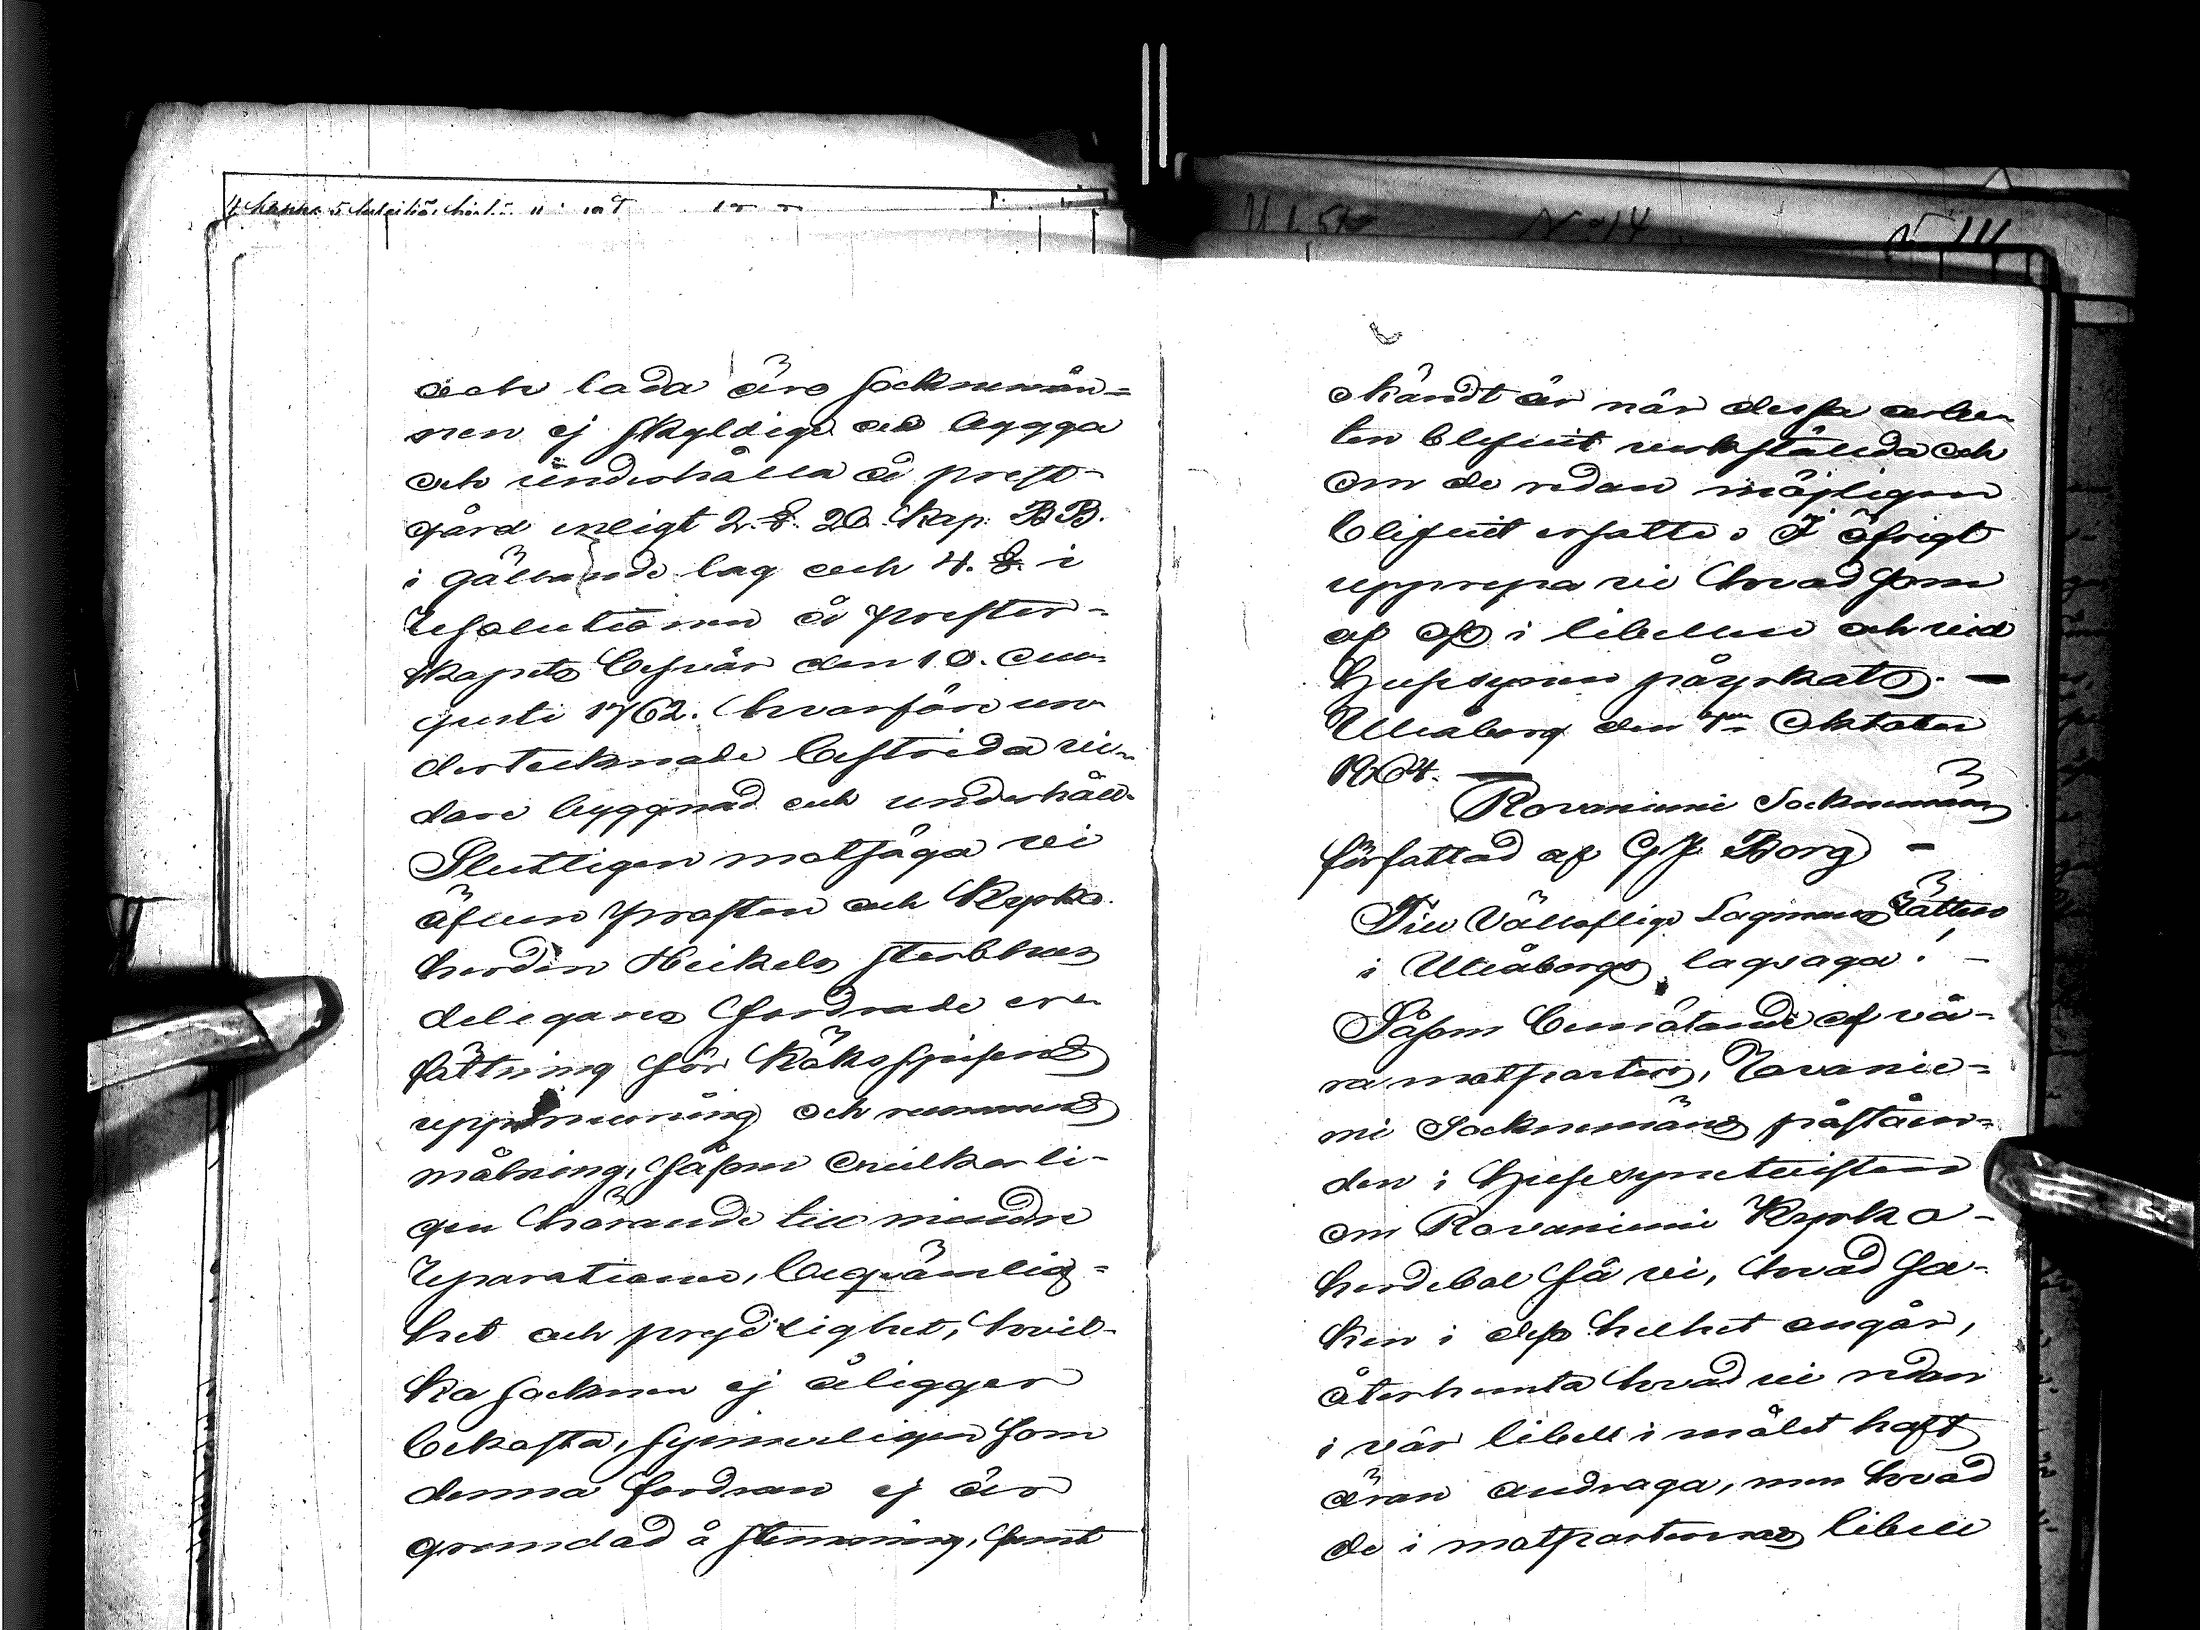 och lada äro sockenmän-
nen ej skyldige att bygga
och underhålla å prest-
gård enligt 2. §. 26. Kap. BB.
i gällande lag och 4. §. i
Resolutionen å prester-
skapets besvär den 10. Au-
gusti 1762. hvarföre un-
dertecknade bestrida vi-
dare byggnad och underhåll.
Slutligen motsäga vi
äfven prosten och Kyrko-
herden Heickels sterbhus
delegares fordrade er-
sättning för köksspisens
uppmurning och rummens
målning, såsom enulkerli-
gen hörande till mindre
reparationer, beqvämlig-
het och prydlighet, hvil-
ka socknen ej åligger
bekosta, synnerligen som
denna fordran ej är
grundad å stemning, samt
okändt är när dessa arbe-
ten blifvit verkställda och
om de redan möjligen
blifvit ersatte. I öfrigt
upprepa vi hvad som
af oss i libellen och vid
husesynen påyrkats. —
Uleåborg den Oktober
1864.
Rovaniemi Sockenmän
författad af G J Borg —
Till Vällofliga Lagmans Rätten
i Uleåborgs lagsaga! —
Såsom bemötande af vå-
ra motparters, Rovanie-
mi Sockenmäns påståen-
den i husesynetvisten
om Rovaniemi Kyrko-
herdebol få vi, hvad sa-
ken i dess helhet angår,
återhemta hvad vi redan
i vår libell i målet haft
äran andraga, men hvad
de i motparternas libell